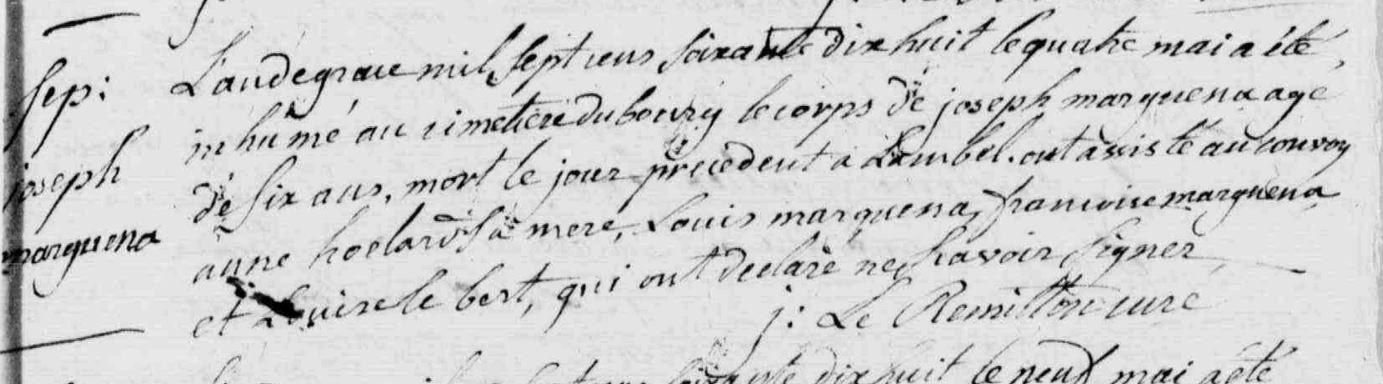 sep:
joseph
marguena
L'an de grace mil sept cens soixante dix huit le quatre mai a été
inhumé au cimetiere du bourg le corps dé joseph marguena agé
dé six ans, mort le jour précédent à Lambel. ont assisté au convoy
anne hoelard sa mere, Louis marguena, francoise marguena
et Louise le bert, qui ont declaré ne sçavoir signer
j: Le Remillon curé
soixante dix huit le neuf mai a été